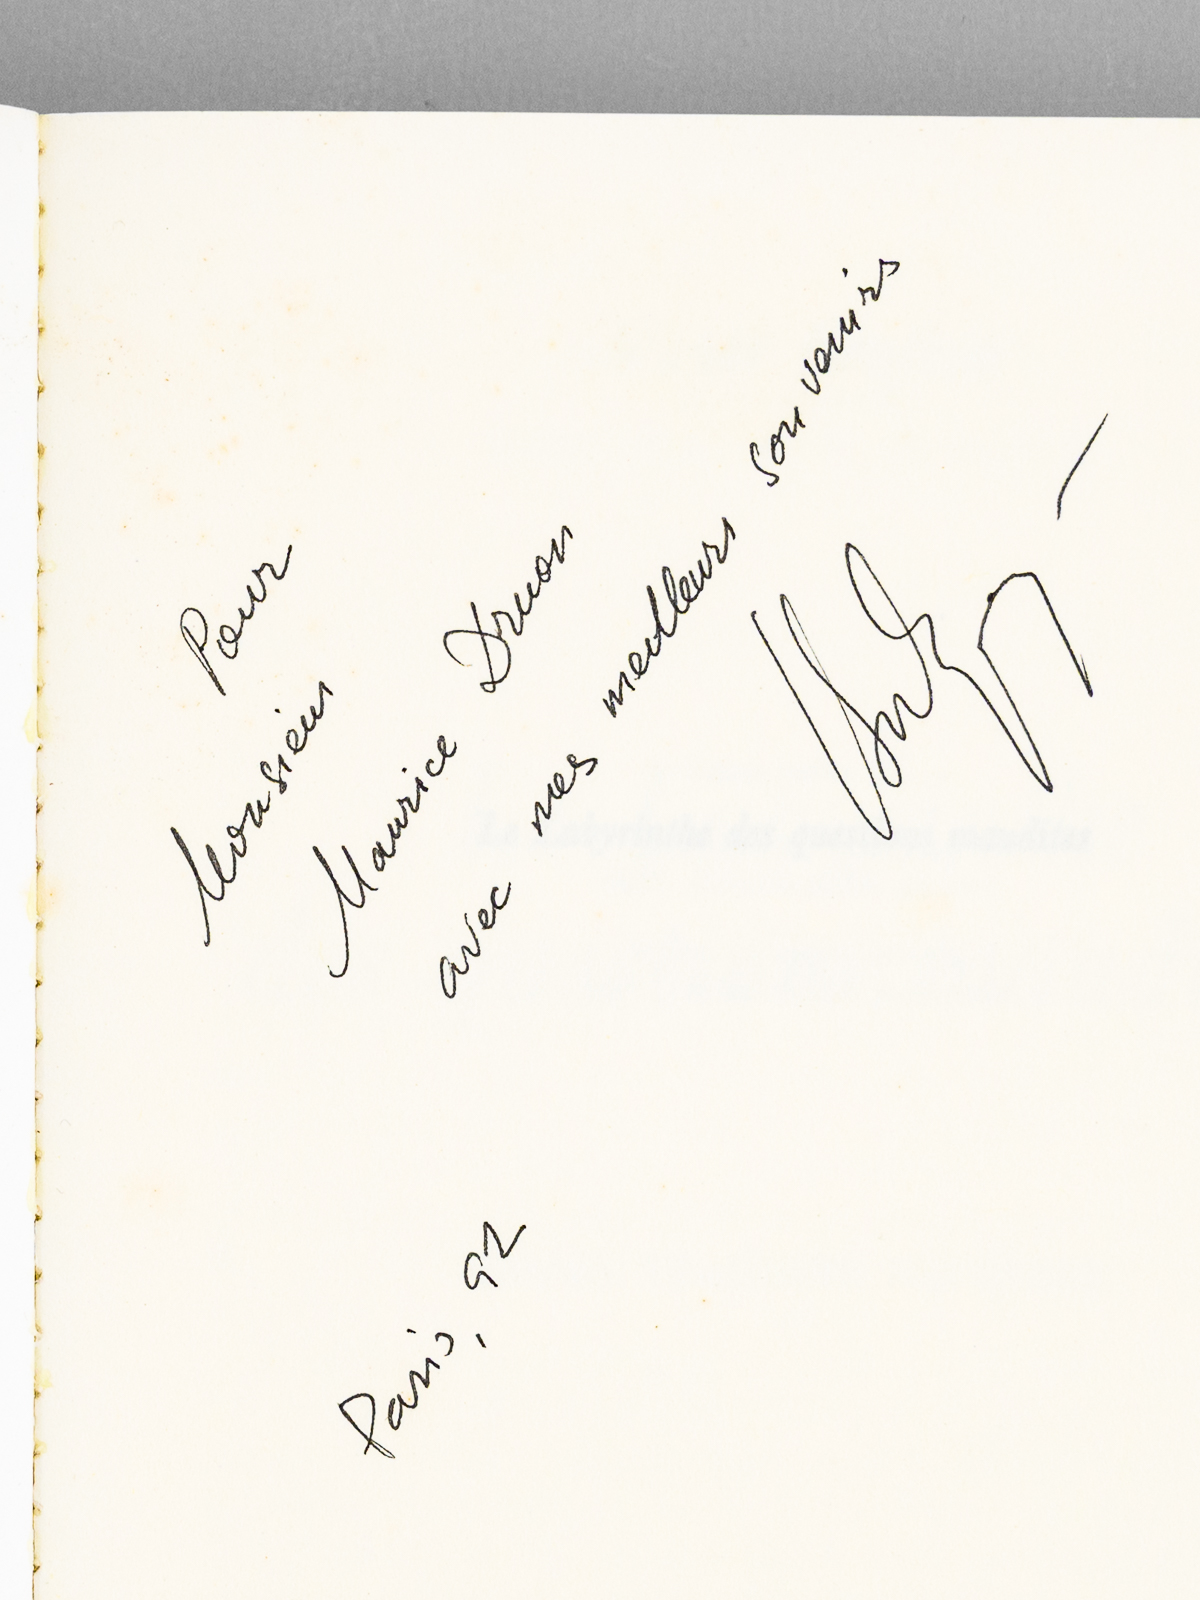 Pour
Monsieur
Maurice Druon
avec mes meilleurs souvenirs
Paris, 92
Le Labyrinthe des questions maudites